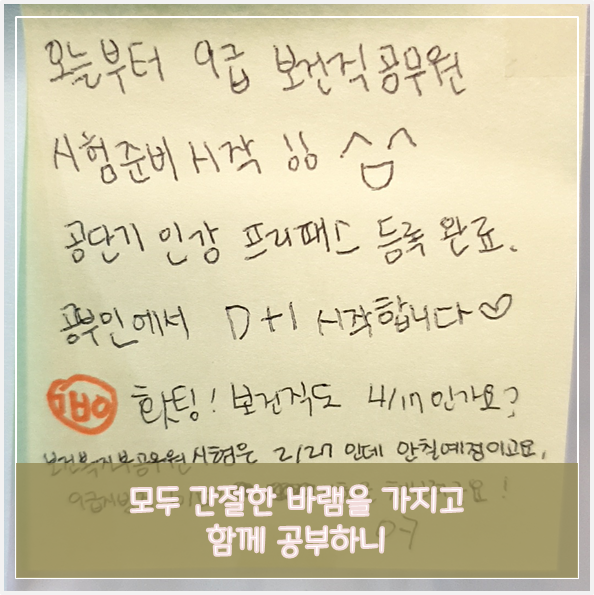 오늘부터 9급 보건직공무원
시험준비 시작 !! ^ㅂ^
공단기 인강 프리패스 등록 완료.
공부인에서 D+1 시작합니다♡
화팅! 보건직도 4/17인가요?
보건복지부공무원시험은 2/27 인데 안칠예정이고요,
모두 간절한 바램을 가지고
함께 공부하니